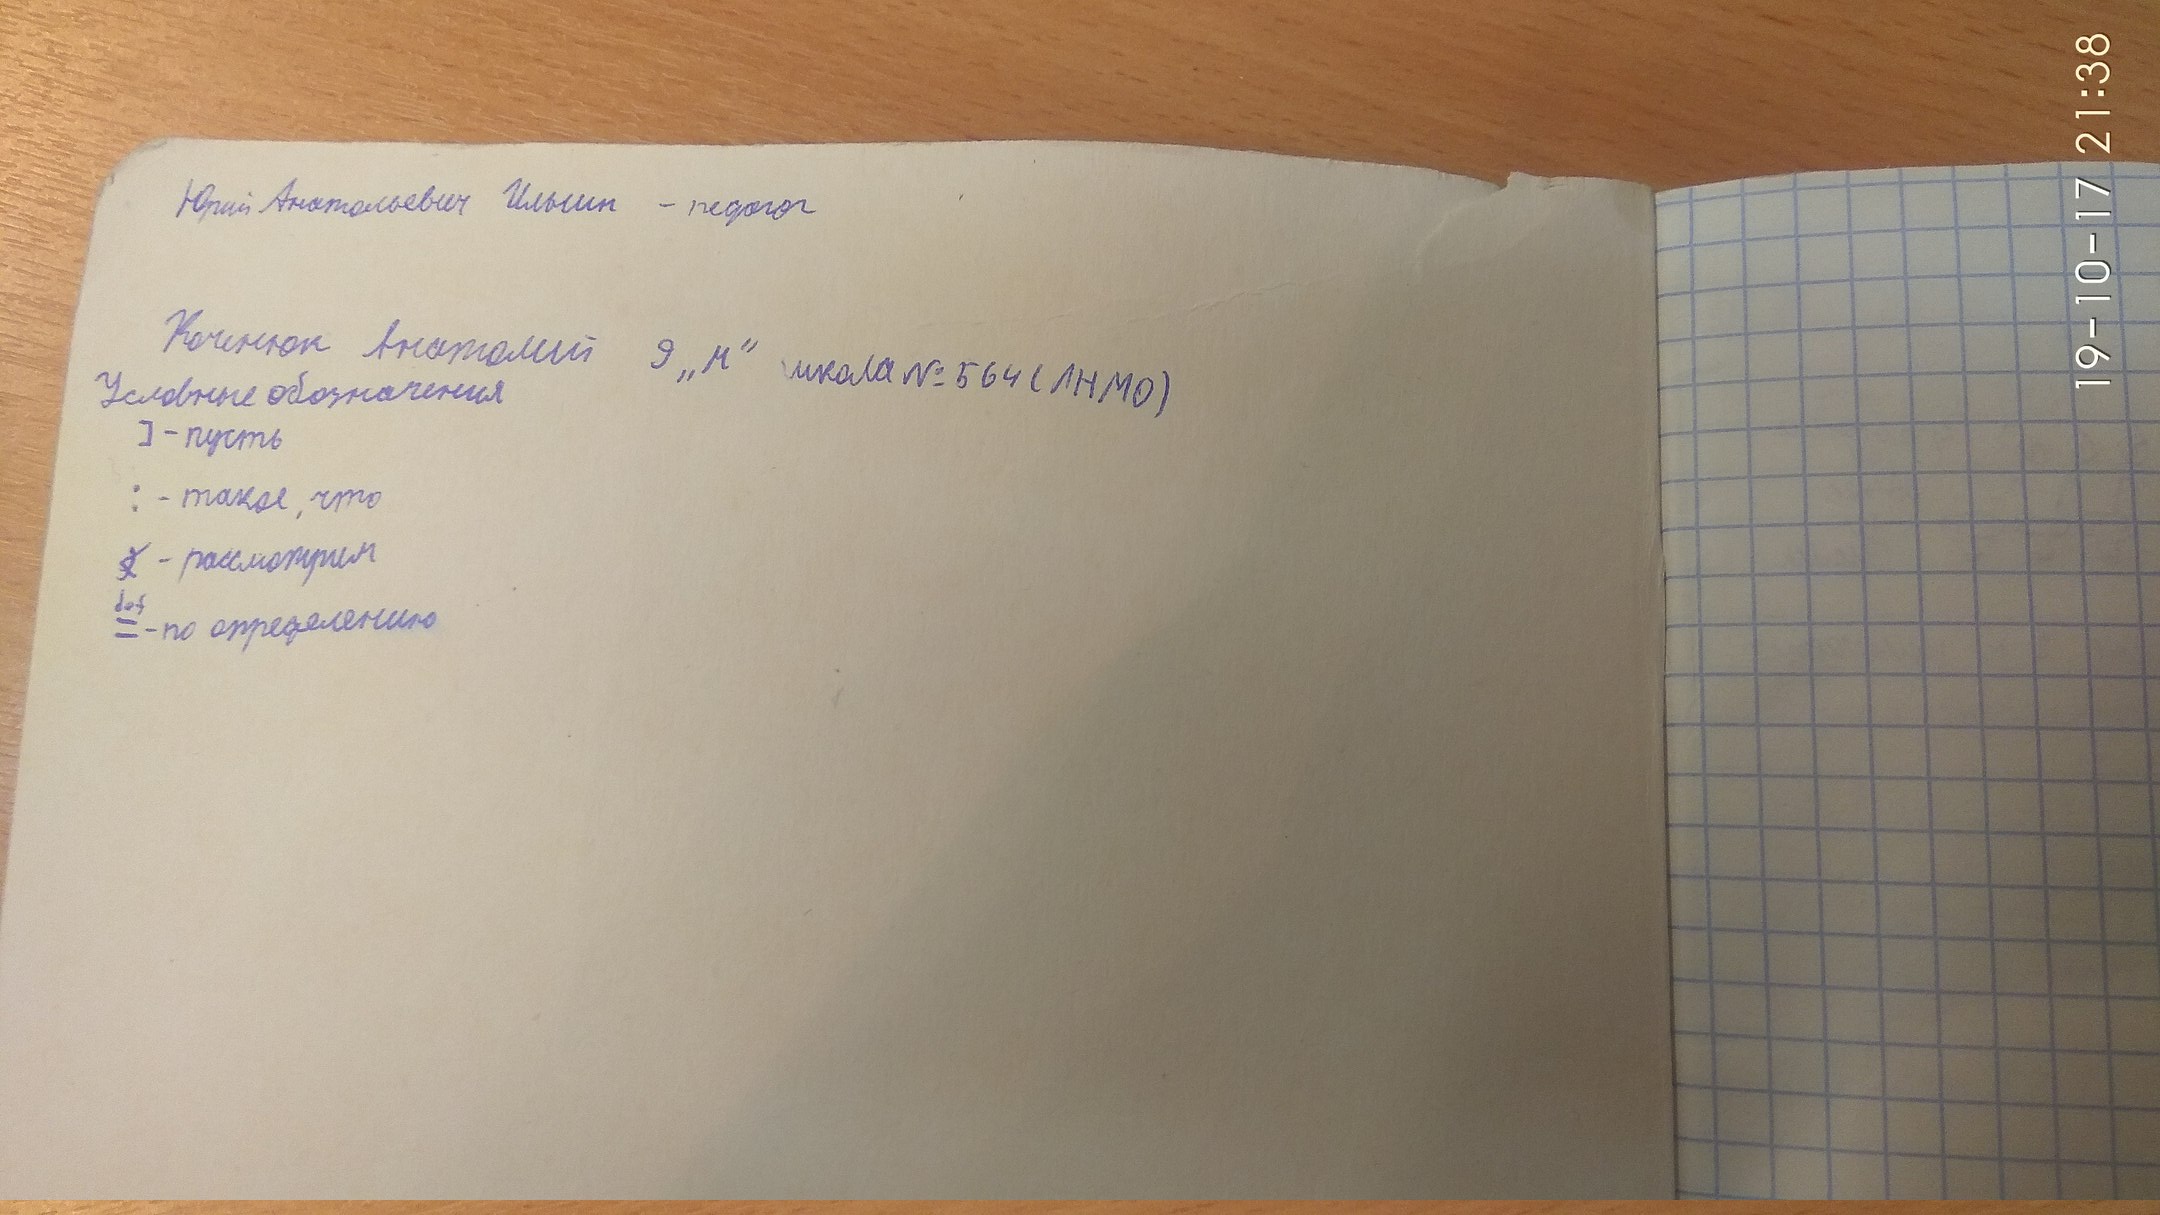 Юрий Анатольевич Ильин - педагог
Коченюк Анатолий 9 „М“ школа № 564 (ЛНМО)
Условные обозначения
] - пусть
: - такое, что
- рассмотрим
def
= - по определению
19-10-17 21:38